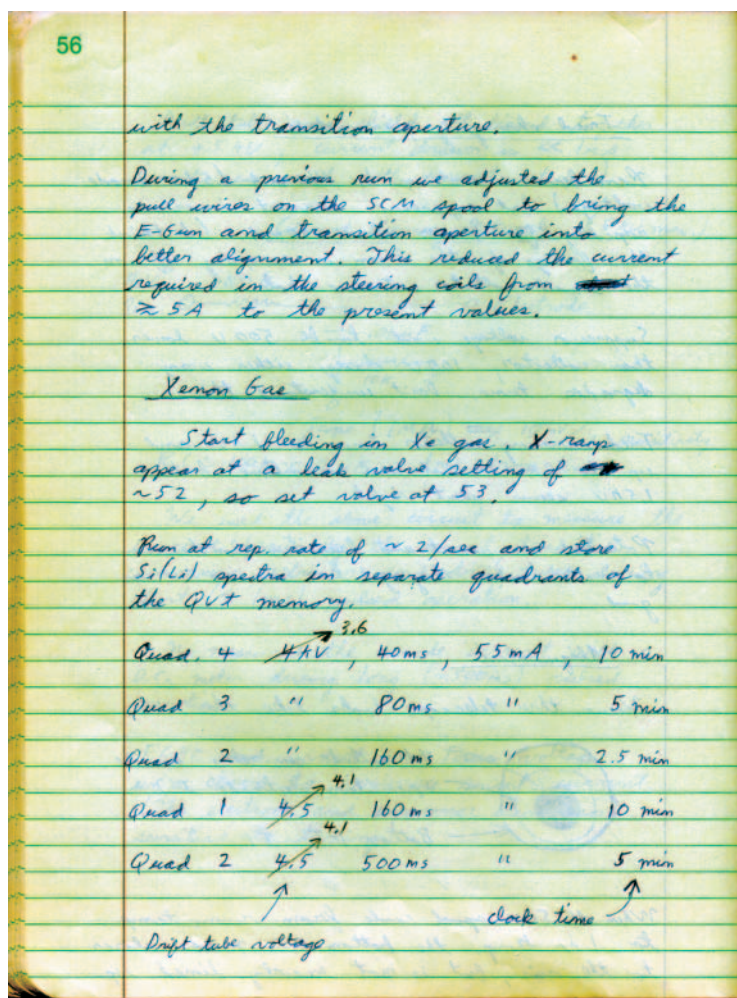 56
with the transition aperture.
During a previous run we adjusted the
pull wires on the SCM spool to bring the
E-Gun and transition aperture into
better alignment. This reduced the current
required in the steering coils from
≳ 5A to the present values.
Xenon Gas
Start bleeding in Xe gas. X-rays
appear at a leak valve setting of
~52, so set valve at 53.
Run at rep. rate of ~ 2/sec and store
Si(Li) spectra in separate quadrants of
the QVt memory.
3.6
Quad. 4 4kV , 40ms , 55mA , 10 min
Quad 3 " 80ms " 5 min
Quad 2 " 160ms " 2.5 min
4.1
Quad 1 4.5 160ms " 10 min
4.1
Quad 2 4.5 500ms " 5 min
clock time
Drift tube voltage